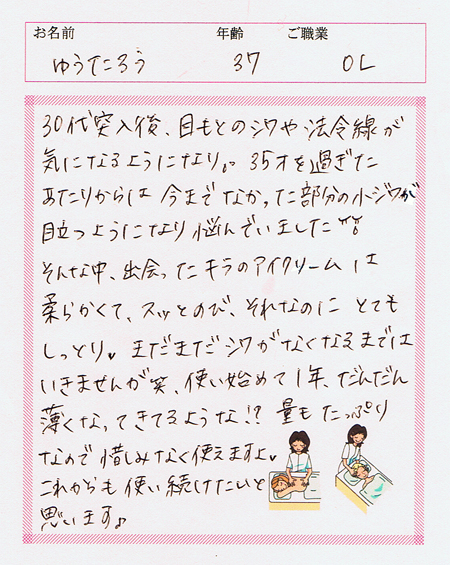 お名前 年齢 ご職業
ゆうたろう 37 OL
30代突入後、目もとのシワや法令線が
気になるようになり。。35才を過ぎた
あたりからは今までなかった部分の小ジワが
目立つようになり悩んでいました
そんな中、出会ったキラのアイクリームは
柔らかくて、スッとのび、それなのに とても
しっとり♥ まだまだシワがなくなるまでは
いきませんが笑、使い始めて1年、だんだん
薄くなってきてるような!? 量もたっぷり
なので惜しみなく使えますよ♥
これからも使い続けたいと
思います♪